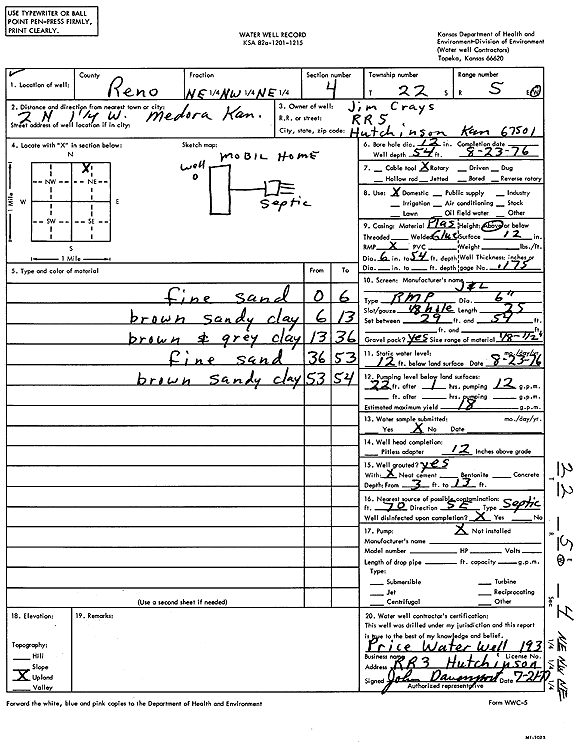 USE TYPEWRITER OR BALL
POINT PEN-PRESS FIRMLY,
PRINT CLEARLY.
WATER WELL RECORD
KSA 82a-1201-1215
Kansas Department of Health and
Environment-Division of Environment
(Water well Contractors)
Topeka, Kansas 66620
1. Location of well: County Reno Fraction NE 1/4 NW 1/4 NE 1/4 Section number 4 Township number T 22 S Range number R 5 E W
2. Distance and direction from nearest town or city:
2 N 1 1/4 W. Medora Kan.
Street address of well location if in city:
3. Owner of well: Jim Crays
R.R. or street: RR5
City, state, zip code: Hutchinson Kan 67501
4. Locate with "X" in section below:
N
X
NW NE
W E
SW SE
S
1 Mile
1 Mile
Sketch map:
MOBIL HOME
well
O
Septic
6. Bore hole dia. 12 in. Completion date
Well depth 54 ft. 8-23-76
7. Cable tool X Rotary Driven Dug
Hollow rod Jetted Bored Reverse rotary
8. Use: X Domestic Public supply Industry
Irrigation Air conditioning Stock
Lawn Oil field water Other
9. Casing: Material Plas Height: Above or below
Threaded Welded Glue Surface 12 in.
RMP X PVC Weight lbs./ft.
Dia. 6 in. to 54 ft. depth Wall Thickness: inches or
Dia. in. to ft. depth gage No. .175
5. Type and color of material From To
fine sand 0 6
brown sandy clay 6 13
brown & grey clay 13 36
fine sand 36 53
brown sandy clay 53 54
(Use a second sheet if needed)
10. Screen: Manufacturer's name
J&L
Type RMP Dia. 6"
Slot/gauze 1/8 hole Length 25
Set between 29 ft. and 54 ft.
ft. and ft.
Gravel pack? yes Size range of material 1/8-1/2"
11. Static water level: mo./day/yr.
12 ft. below land surface Date 8-23-76
12. Pumping level below land surfaces:
22 ft. after 1 hrs. pumping 12 g.p.m.
ft. after hrs. pumping g.p.m.
Estimated maximum yield 18 g.p.m.
13. Water sample submitted: mo./day/yr.
Yes X No Date
14. Well head completion:
Pitless adapter 12 Inches above grade
15. Well grouted? yes
With: X Neat cement Bentonite Concrete
Depth: From 3 ft. to 13 ft.
16. Nearest source of possible contamination:
ft. 70 Direction SE Type Septic
Well disinfected upon completion? X Yes No
17. Pump: X Not installed
Manufacturer's name
Model number HP Volts
Length of drop pipe ft. capacity g.p.m.
Type:
Submersible Turbine
Jet Reciprocating
Centrifugal Other
18. Elevation:
Topography:
Hill
Slope
X Upland
Valley
19. Remarks:
20. Water well contractor's certification:
This well was drilled under my jurisdiction and this report
is true to the best of my knowledge and belief.
Price Water Well 193
Business name License No.
Address RR3 Hutchinson
Signed John Davenport Date
Authorized representative
T 22 R 5 Sec 4 NE NW NE
1/4 1/4 1/4
Forward the white, blue and pink copies to the Department of Health and Environment
Form WWC-5